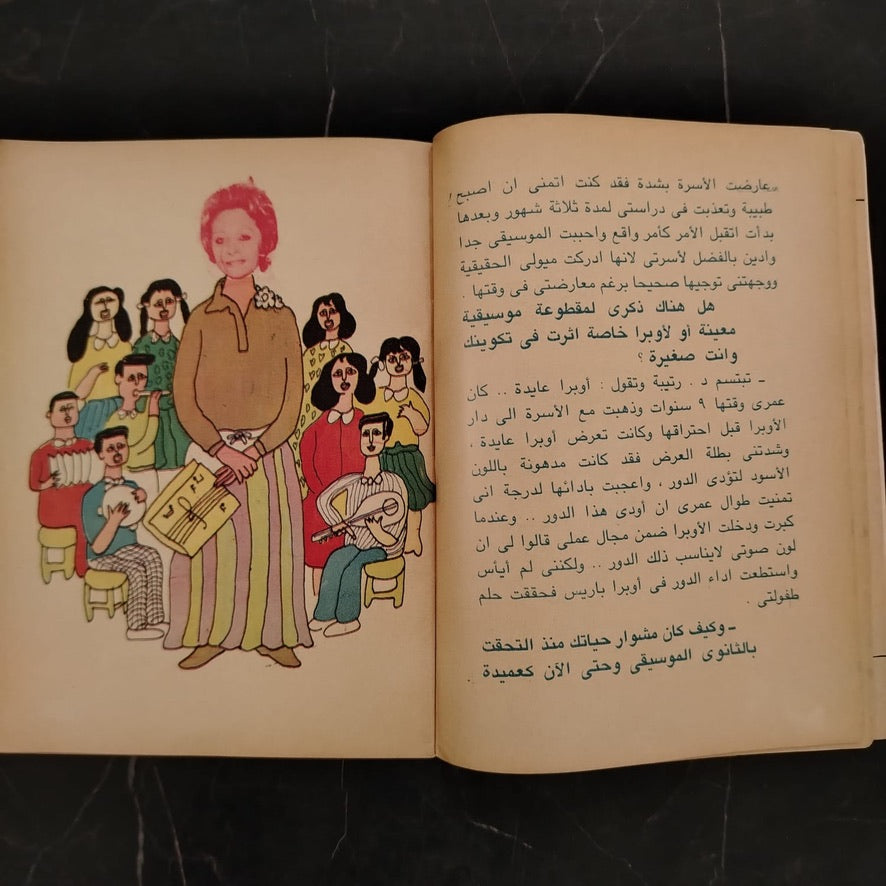 عارضت الأسرة بشدة فقد كنت اتمنى ان اصبح
طبيبة وتعذبت فى دراستى لمدة ثلاثة شهور وبعدها
بدأت اتقبل الأمر كأمر واقع واحببت الموسيقى جدا
وادين بالفضل لأسرتى لانها ادركت ميولى الحقيقية
ووجهتنى توجيها صحيحا برغم معارضتى فى وقتها .
هل هناك ذكرى لمقطوعة موسيقية
معينة أو لأوبرا خاصة اثرت فى تكوينك
وانت صغيرة ؟
ـ تبتسم د . رتيبة وتقول : أوبرا عايدة .. كان
عمرى وقتها ٩ سنوات وذهبت مع الأسرة الى دار
الأوبرا قبل احتراقها وكانت تعرض أوبرا عايدة ،
وشدتنى بطلة العرض فقد كانت مدهونة باللون
الأسود لتؤدى الدور ، واعجبت بادائها لدرجة انى
تمنيت طوال عمرى ان أودى هذا الدور .. وعندما
كبرت ودخلت الأوبرا ضمن مجال عملى قالوا لى ان
لون صوتى لايناسب ذلك الدور .. ولكننى لم أيأس
واستطعت اداء الدور فى أوبرا باريس فحققت حلم
طفولتى .
ـ وكيف كان مشوار حياتك منذ التحقت
بالثانوى الموسيقى وحتى الآن كعميدة